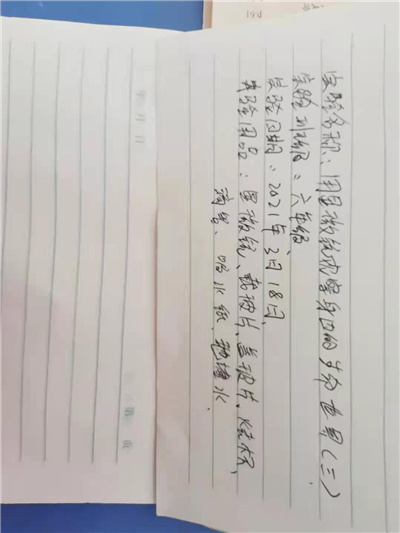 实验名称：用显微镜观察身边的生命世界(三)
实验班级：六年级
实验日期：2021年3月18日
实验用品：显微镜、载玻片、盖玻片、烧杯、
滴管、吸水纸、池塘水
年 月 日
第 页
P.61